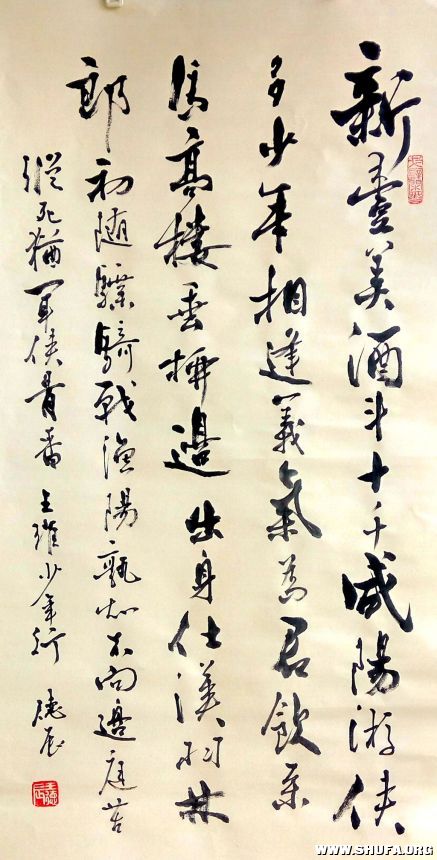 新豐美酒斗十千咸陽游俠
多少年相逢義氣為君飲系
馬高樓垂柳邊出身仕漢羽林
郎初随驃騎戰漁陽孰知不向邊庭苦
縱死猶聞俠骨香 王維少年行
WWW.SHUFA.ORG